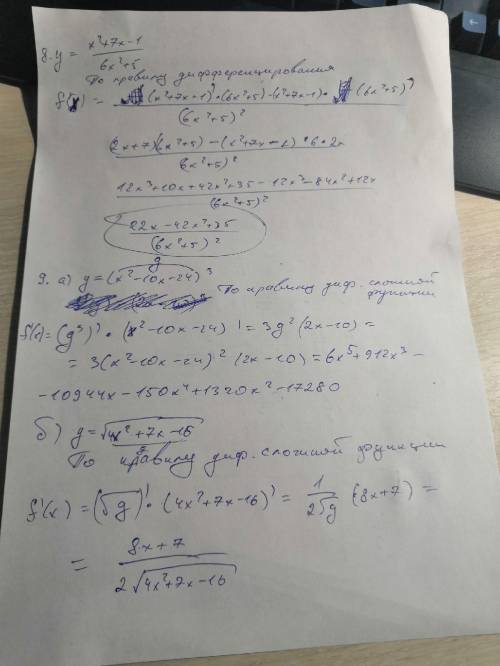 8. y = (x²+7x-1)/(6x²+5)
По правилу дифференцирования
f(x) = ((x²+7x-1)'·(6x²+5)-(x²+7x-1)·(6x²+5)')/(6x²+5)²
((2x+7)(6x²+5)-(x²+7x-1)·6·2x)/(6x²+5)²
(12x³+10x+42x²+35-12x³-84x²+12x)/(6x²+5)²
(22x-42x²+35)/(6x²+5)²
g
9. а) y=(x²-10x-24)³
По правилу диф. сложной функции
f'(x)=(g³)'·(x²-10x-24)'=3g²(2x-10)=
=3(x²-10x-24)²(2x-10)=6x⁵+912x³-
-10944x-150x⁴+1320x²-17280
б) y=√(4x²+7x-16)
По правилу диф. сложной функции
f'(x)=(√g)'·(4x²+7x-16)'=1/(2√g)·(8x+7)=
=(8x+7)/(2√(4x²+7x-16))